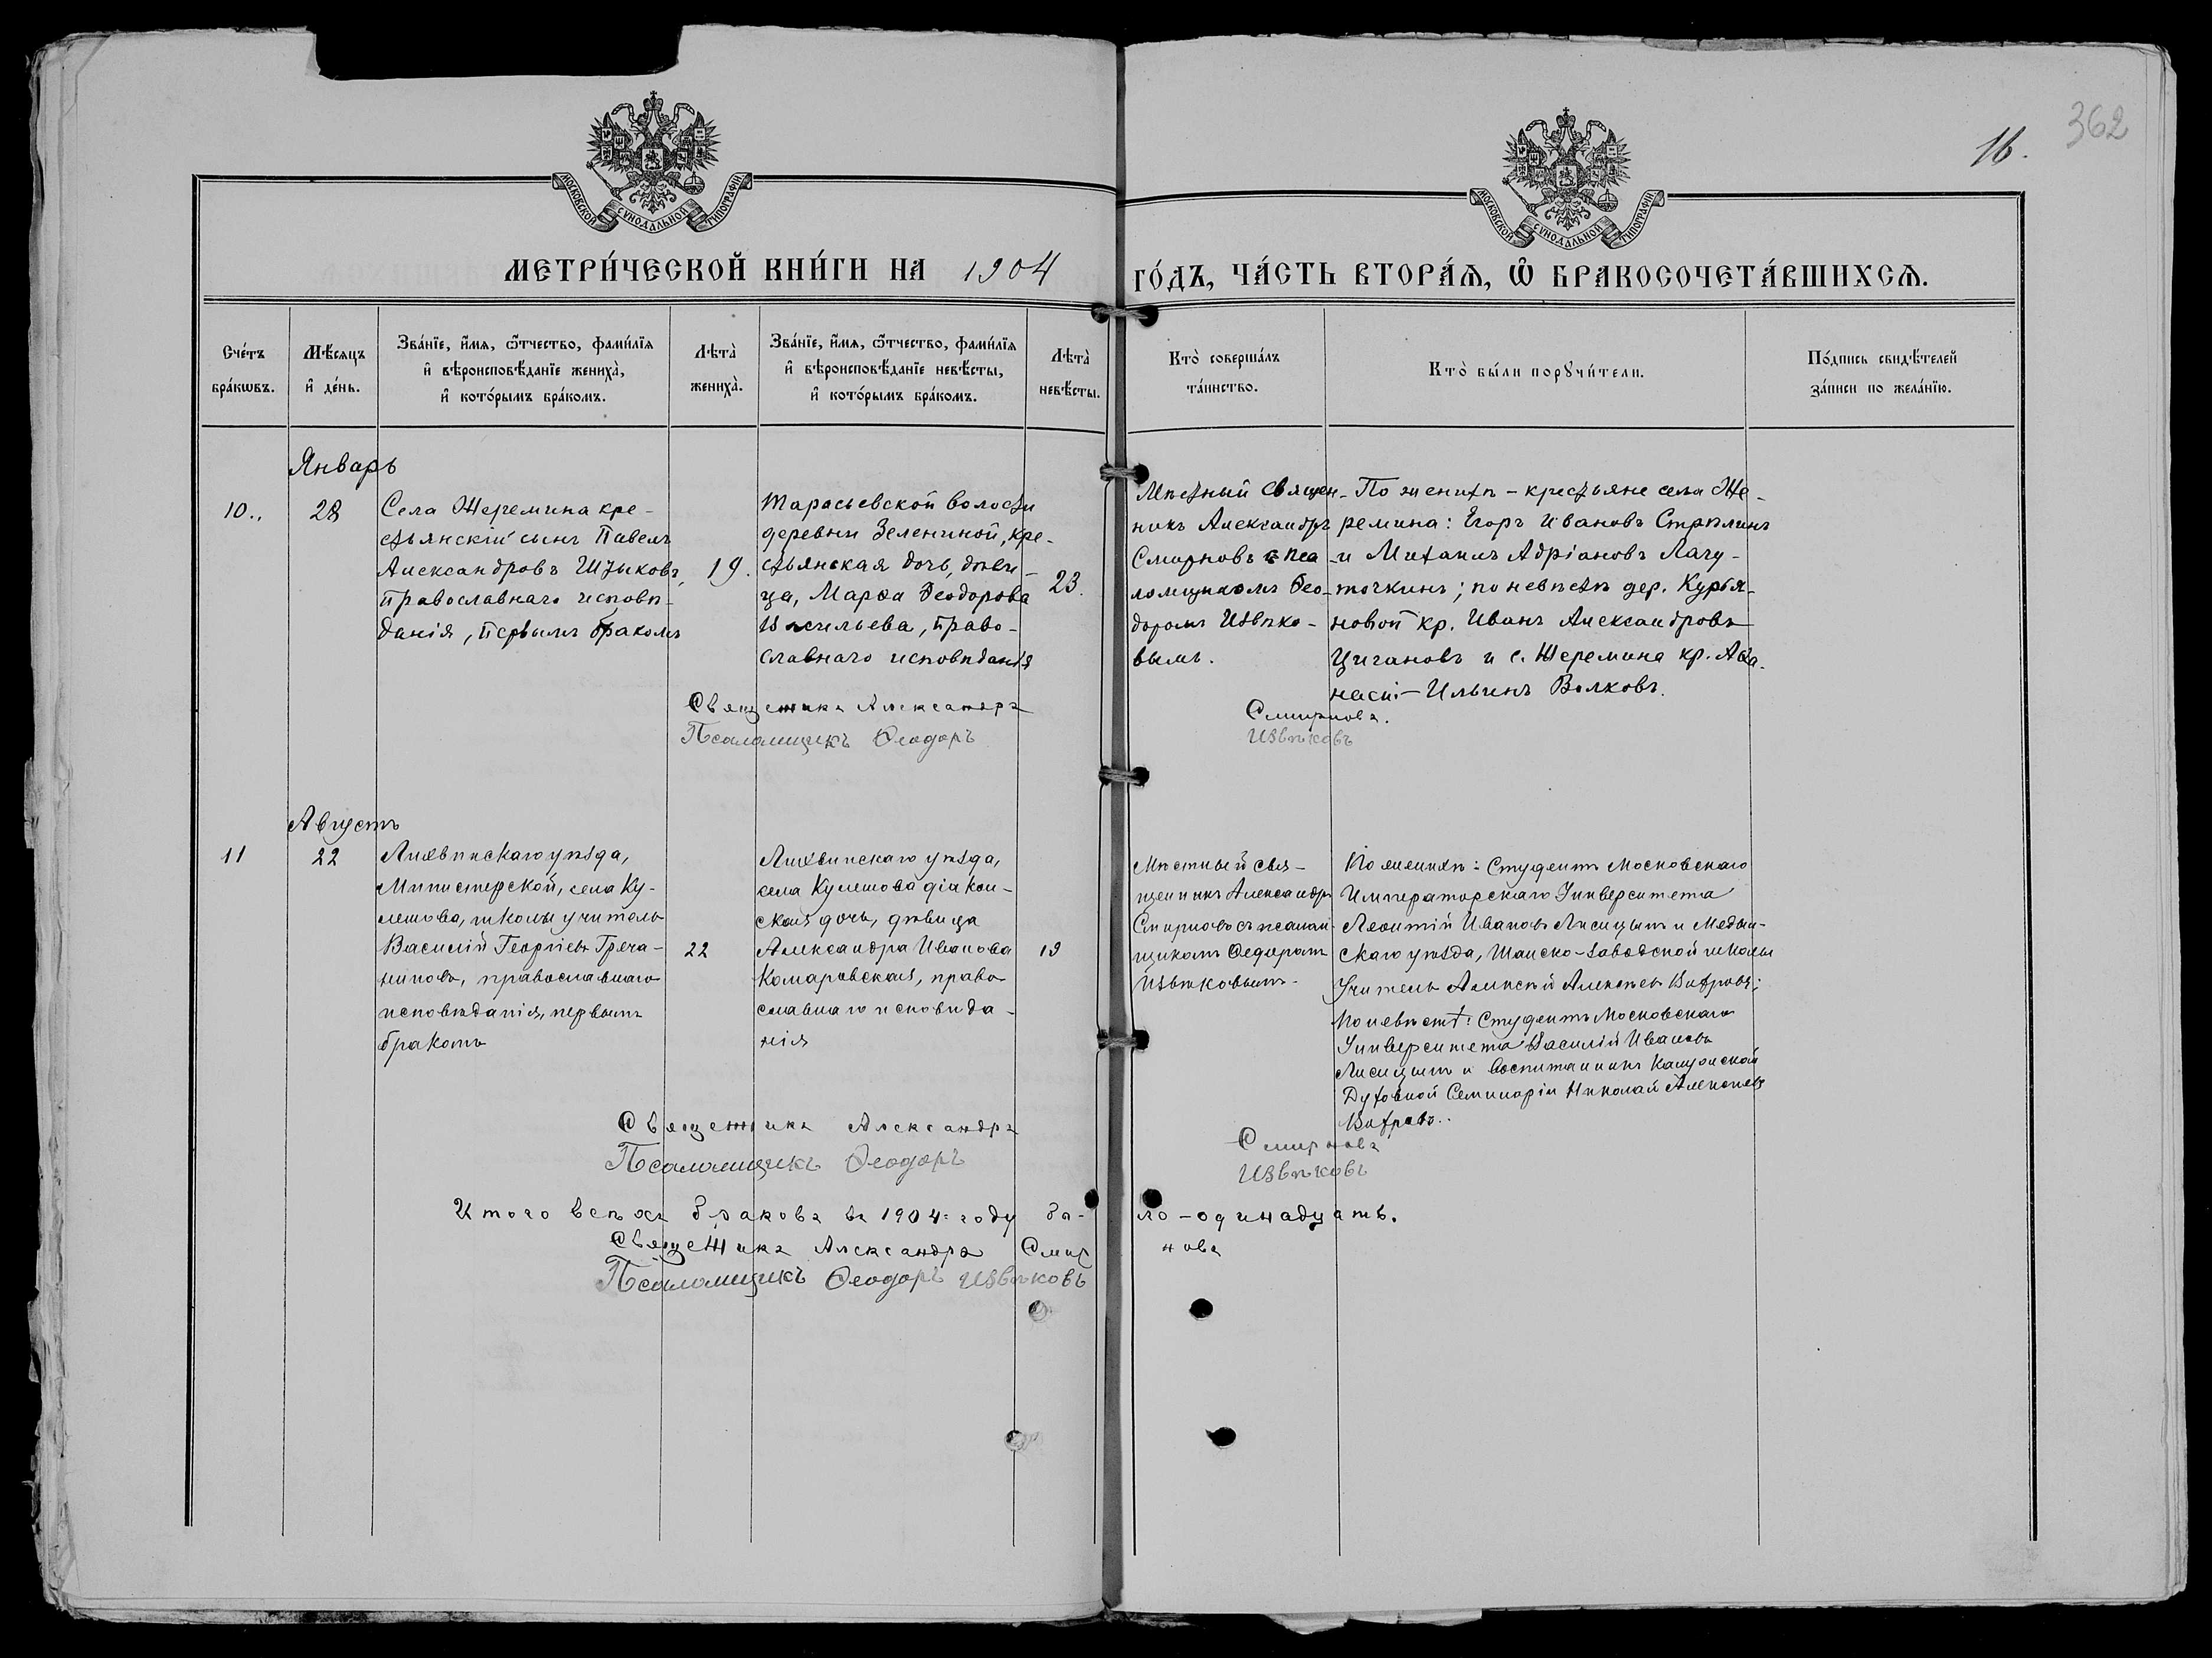 362
16.
МОСКОВСКОЙ СѴНОДАЛЬНОЙ ТИПОГРАФІИ
МОСКОВСКОЙ СѴНОДАЛЬНОЙ ТИПОГРАФІИ
МЕТРИ́ЧЕСКОЙ КНИ́ГИ НА 1904
ГО́ДЪ, ЧА́СТЬ ВТОРА́Ѧ, Ѡ҆ БРАКОСОЧЕТА́ВШИХСѦ.
Сче́тъ
бра́кѡвъ.
Мѣ́сяцъ
и҆ де́нь.
Зва́нїе, и҆́мѧ, ѻ҆́тчество, фами́лїѧ
и҆ вѣроисповѣ́данїе жениха̀,
и҆ кото́рымъ бра́комъ.
Лѣта̀
жениха̀.
Зва́нїе, и҆́мѧ, ѻ҆́тчество, фами́лїѧ
и҆ вѣроисповѣ́данїе невѣ́сты,
и҆ кото́рымъ бра́комъ.
Лѣта̀
невѣ́сты.
Кто̀ соверша́лъ
та́инство.
Кто̀ бы́ли порꙋчи́тели.
По́дпись свидѣ́телей
за́писи по жела́нїю.
Январь
10..
28
Села Жеремина кре-
стьянскій сынъ Павелъ
Александровъ Шзыковъ,
православнаго исповѣ-
данія, первымъ бракомъ
19.
Тарасьевской волости
деревни Зелениной, кре-
стьянская дочь, дѣви-
ца, Марѳа Ѳеодорова
Васильева, право-
славнаго исповѣданія
23.
Мѣстный Священ-
никъ Александръ
Смирновъ с пса
ломщикомъ Ѳео-
доромъ Извѣко-
вымъ.
По женихѣ - крестьяне села Же-
ремина: Егоръ Ивановъ Стрѣлинъ
и Михаилъ Адріановъ Лагу-
точкинъ; по невѣстѣ дер. Курья-
новой кр. Иванъ Александровъ
Цигановъ и с. Жеремина кр. Аѳа-
насій - Ильинъ Волковъ.
Священникъ Александръ Смирновъ.
Псаломщикъ Ѳеодоръ Извѣковъ
Августъ
11
22
Лихвинскаго уѣзда,
Министерской, села Ку-
лешова, школы учитель
Василій Георгіевъ Греча-
ниновъ, православнаго
исповѣданія, первымъ
бракомъ
22
Лихвинскаго уѣзда,
села Кулешова діакон-
ская дочь, дѣвица
Александра Иванова
Комаровская, право
славнаго исповѣда-
нія
19
Мѣстный свя-
щенникъ Александръ
Смирновъ съ псалом-
щикомъ Ѳедоромъ
Извѣковымъ.
По женихѣ: Студентъ Московскаго
Императорскаго Университета
Леонтій Ивановъ Лисицынъ и Медын-
скаго уѣзда, Шанско-Заводской школы
Учитель Алексѣй Алексѣевъ Вихровъ;
По невѣстѣ: Студентъ Московскаго
Университета Василій Ивановъ
Лисицынъ и Воспитанникъ Калужской
Духовной Семинаріи Николай Алексѣевъ
Вихровъ..
Священникъ Александръ Смирновъ
Псаломщикъ Ѳеодоръ Извѣковъ
Итого всѣхъ браковъ въ 1904: году бы-ло - одинадцать.
Священникъ Александръ Смирновъ
Псаломщикъ Ѳеодоръ Извѣковъ